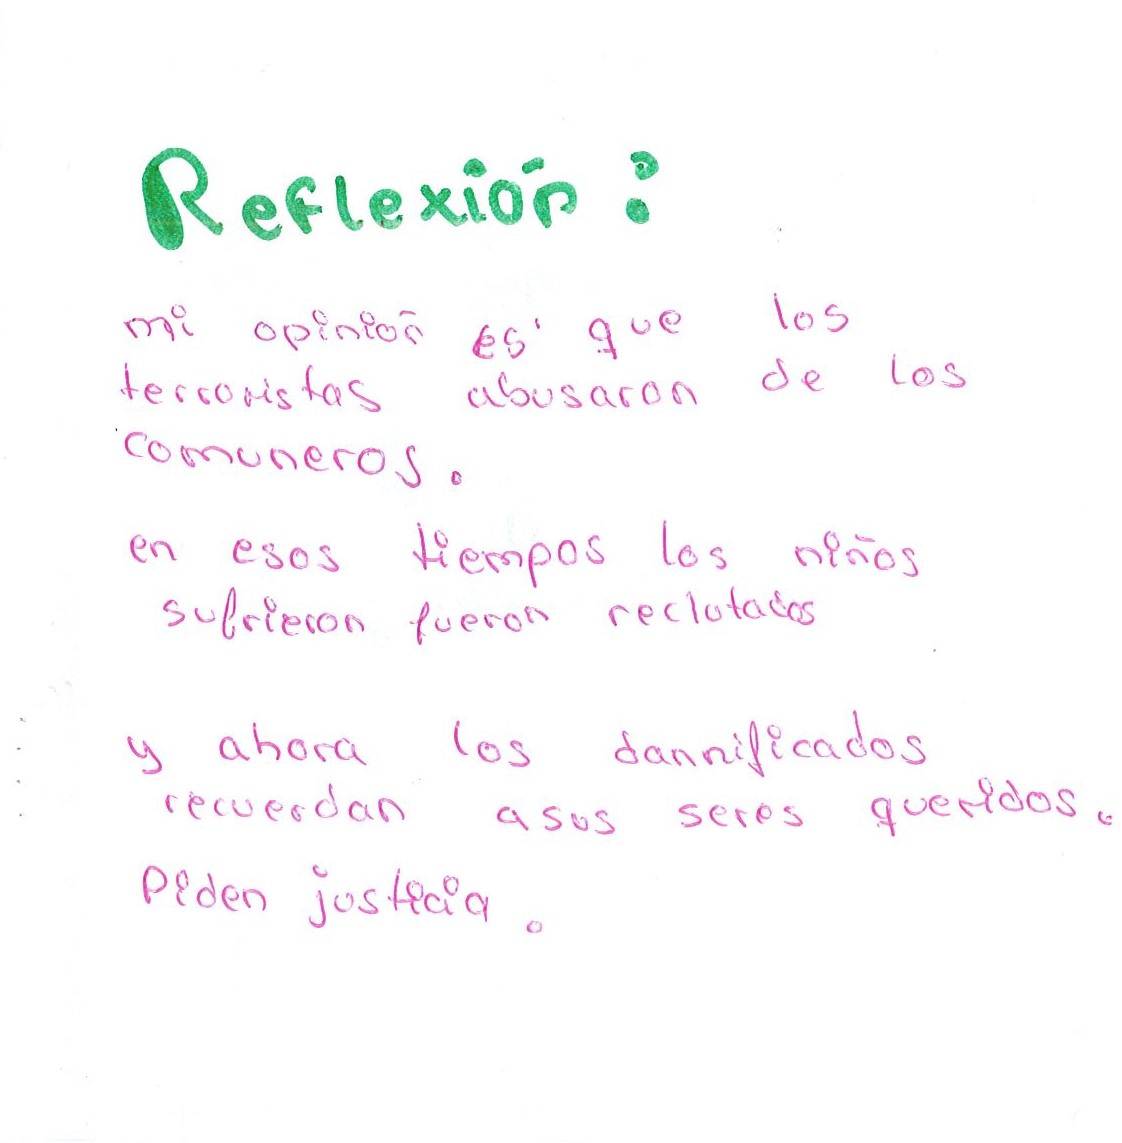 Reflexión:
mi opinión es que los
terroristas abusaron de los
comuneros.
en esos tiempos los niños
sufrieron fueron reclutados
y ahora los dannificados
recuerdan asus seres queridos.
Piden justicia.